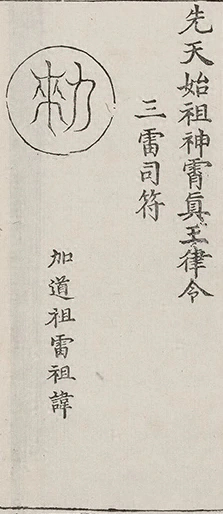 先天始祖神霄眞王律令
三雷司符
勑
加道祖雷祖諱